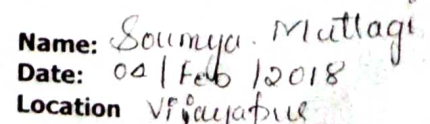 Name: Soumya. Muttagi
Date: 04 | Feb | 2018
Location Vijayapur